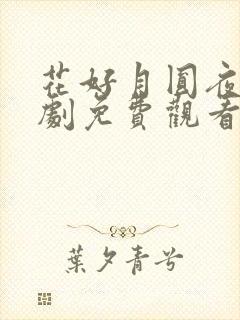 花好月圓夜
劇免費觀看
葉夕青兮